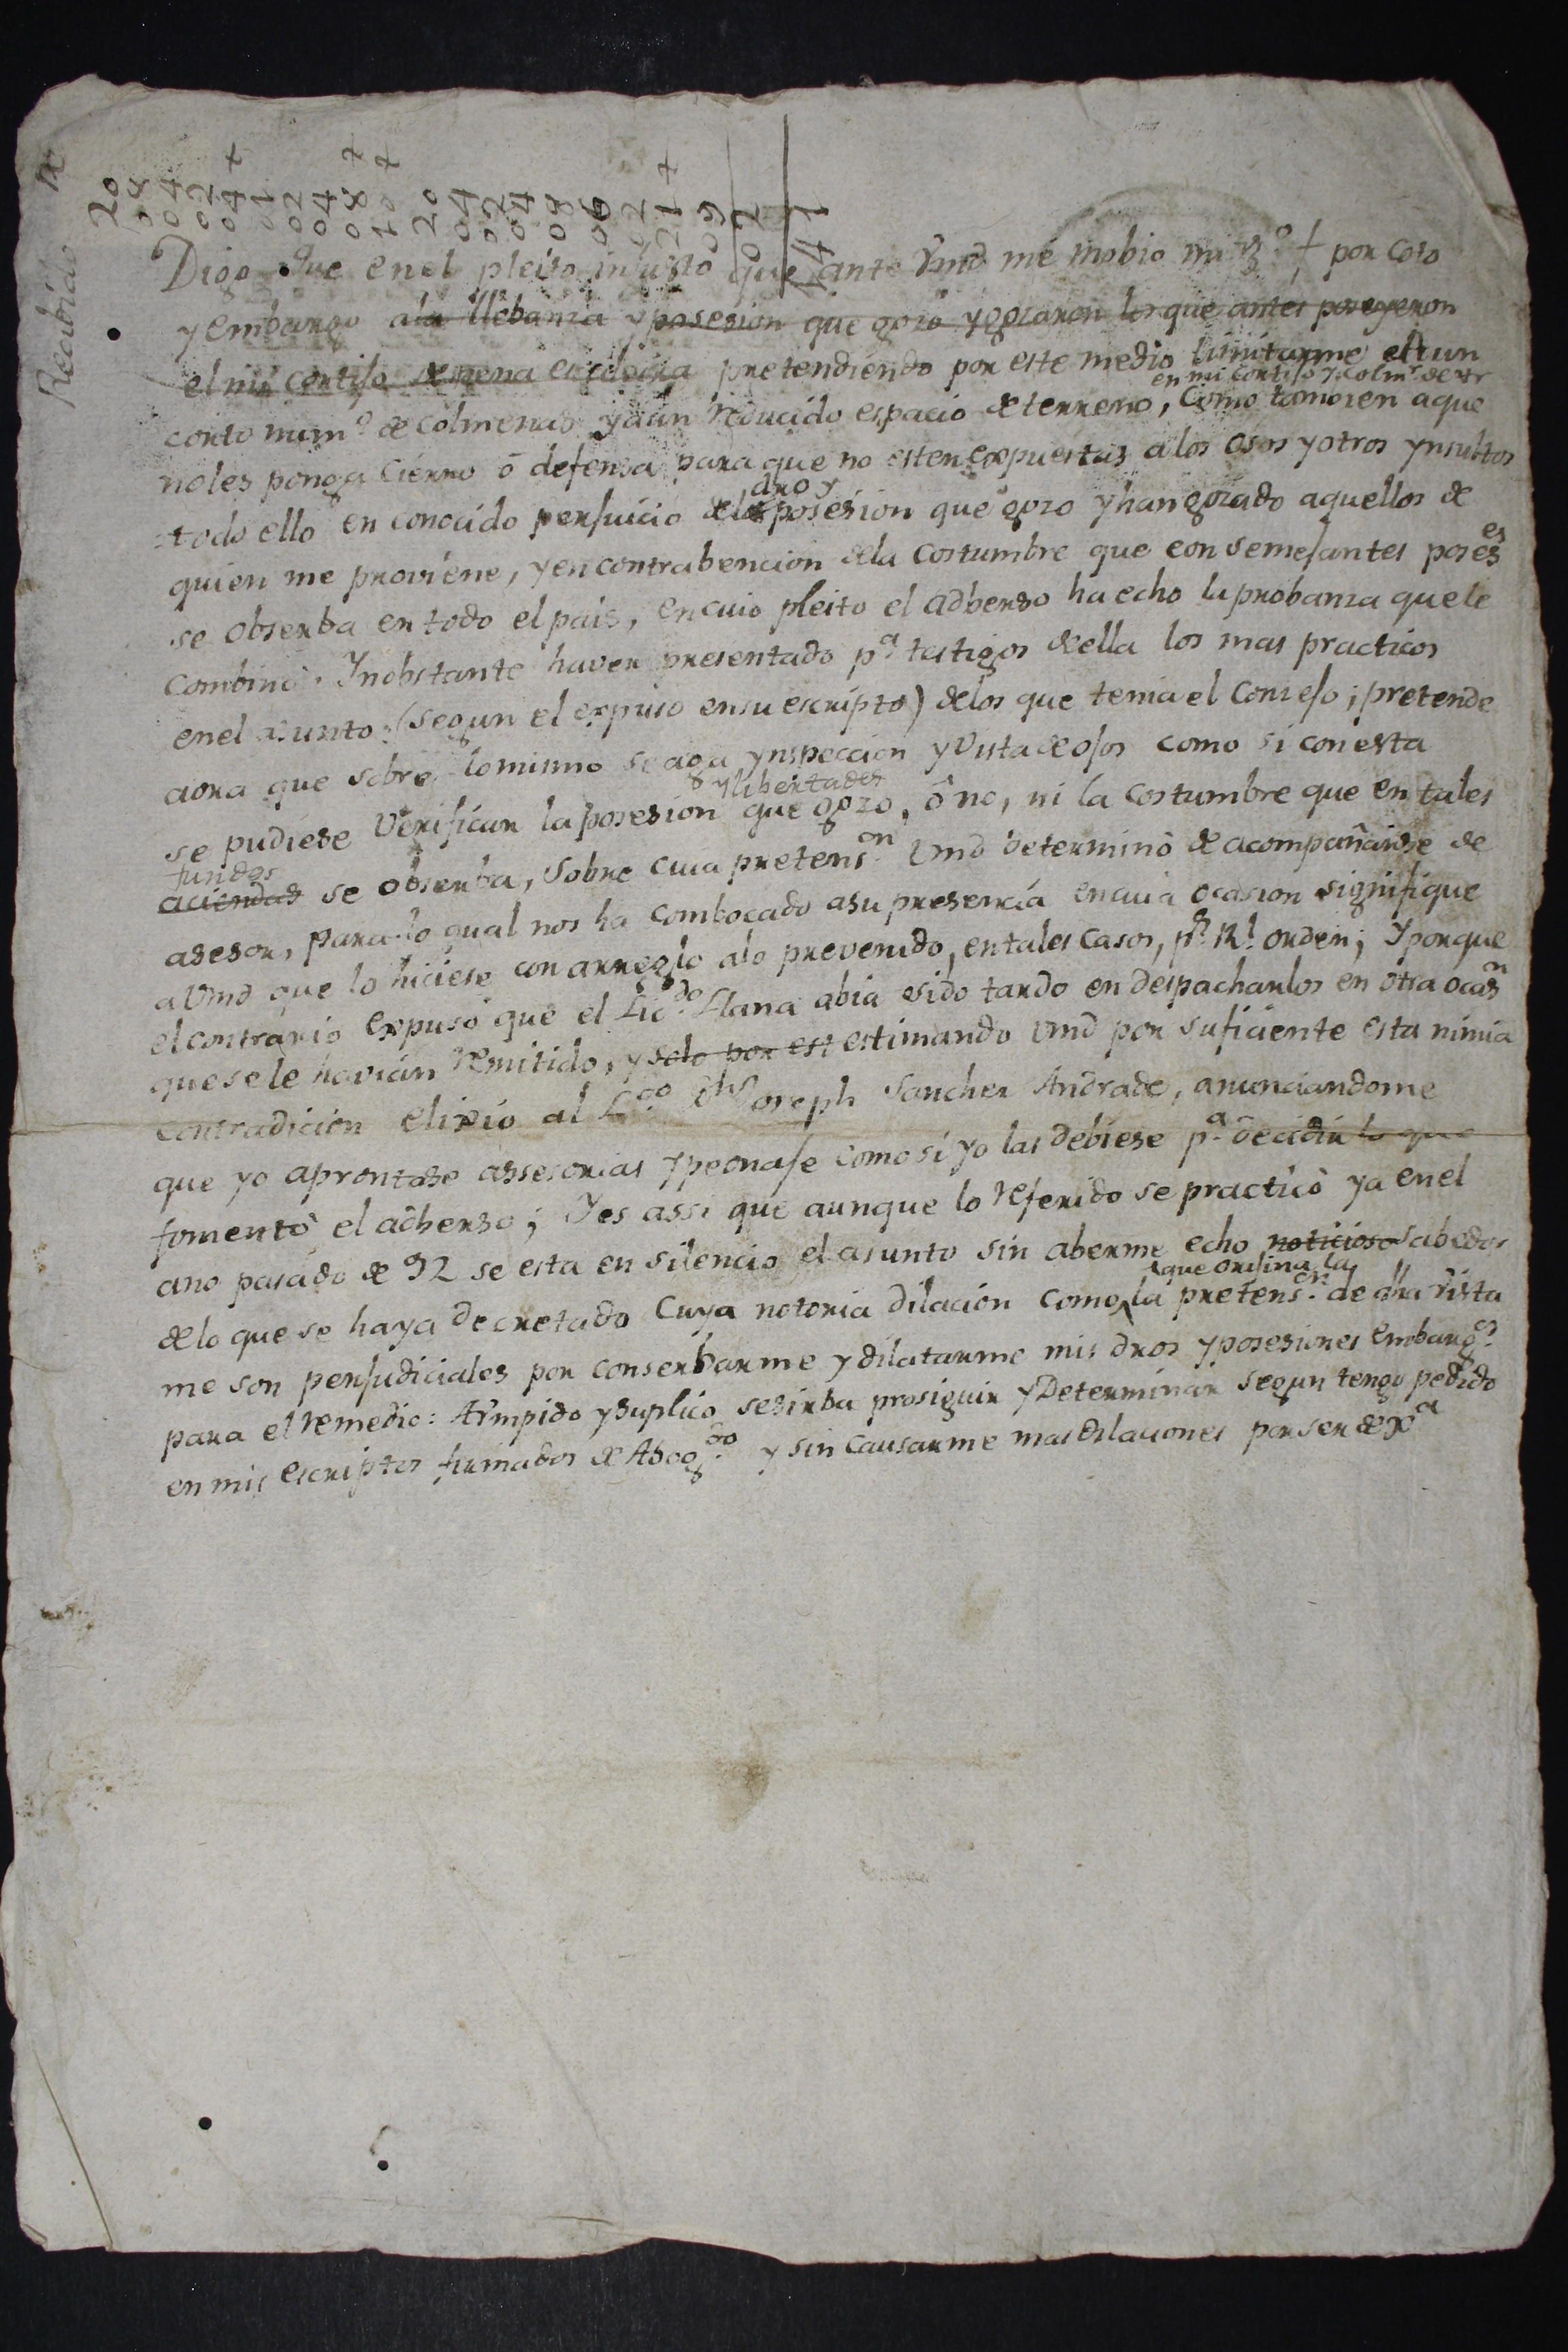 Recibido
20
04
02
04 +
01
02
04
08 +
10 +
20
04
02
04
08
06
02
21 +
09
02
141
Digo Que en el pleito injusto que ante Vmd me mobio mi Vz.º + por coto
y embargo a la llebanza y posesion que gozo y gozaron los que antes poseyeron
el mi cortijo pretendiendo por este medio limitarme a un
en mi cortijo y colm.r de
corto num.º de colmenas y a un reducido espacio de terreno, como tambien a que
no les ponga cierro ô defensa para que no esten expuestas a los osos y otros ynsultos
dro y
todo ello en conocido perjuicio de la posesion que gozo y han gozado aquellos de
quien me proviene, y en contrabencion de la costumbre que con semejantes poses.es
se obserba en todo el pais, en cuio pleito el adberso ha echo la probanza que le
combino. Y nobstante haver presentado p.a testigos de ella los mas practicos
en el asunto (segun el expuso en su escripto) de los que tenia el Conzejo; pretende
aora que sobre lo mismo se aga ynspeccion y vista de ojos como si con esta
y libertades
se pudiese verificar la posesion que gozo, ô no, ni la costumbre que en tales
fundos
aciendas se obserba, sobre cuia pretens.on Vmd determinô de acompañarse de
asesor, para lo qual nos ha combocado a su presencia en cuia ocasion signifique
a Vmd que lo hiciese con arreglo a lo prevenido, en tales casos, p.r Rl. orden; Y porque
el contrario expuso que el Lic.do Llana abia sido tardo en despacharlos en otra ocas.n
que se le havian remitido, y solo por est estimando Vmd por suficiente esta nimia
contradicion elixio al L.do Dn Joseph Sanchez Andrade, anunciandome
que yo aprontase assesorias y peonaje como si yo las debiese p.a decidir lo que
fomentô el adberso; Y es assi que aunque lo referido se practicô ya en el
ano pasado de 92 se esta en silencio el asunto sin aberme echo noticioso sabedor
que orijina la
de lo que se haya decretado cuya notoria dilacion como la pretens.on de dha vista
me son perjudiciales por conserbarme y dilatarme mis dros y posesiones embarg.s
para el remedio: A Vm pido y suplico se sirba prosiguir y determinar segun tengo pedido
en mis escriptos firmados de Abog.do y sin causarme mas dilaciones por ser de Xª